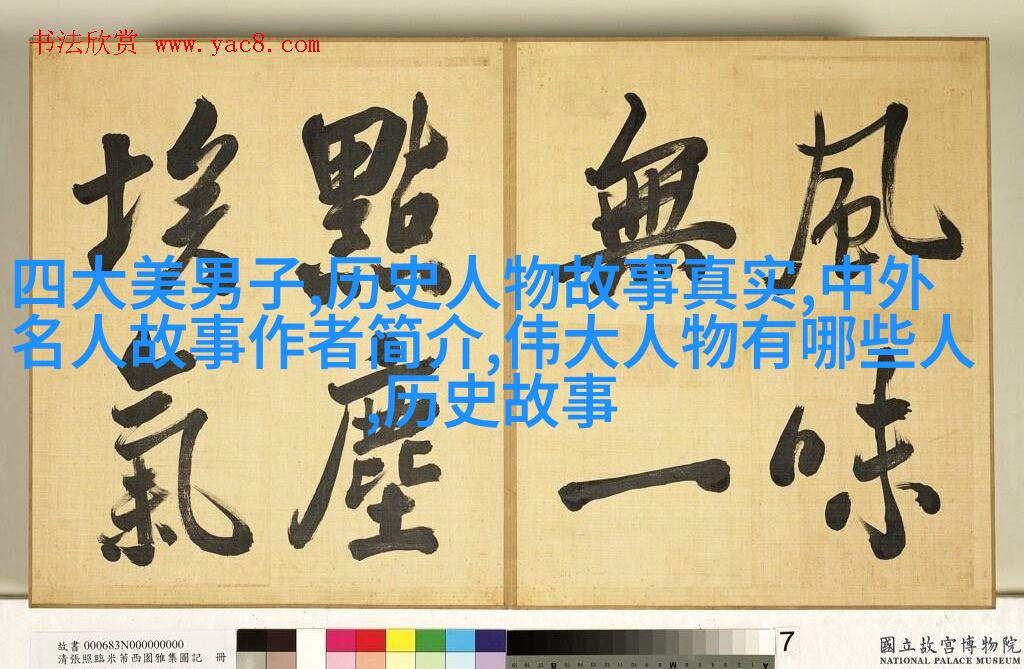 书法欣赏 www.yac8.com
風味
無一
點塵
埃氣
四大美男子,历史人物故事真实,中外
名人故事作者简介,伟大人物有哪些人
,历史故事
故書 000683N000000000
清張照臨米芾西園雅集圖記 冊
7
國立故宮博物院
NATIONAL PALACE MUSEUM